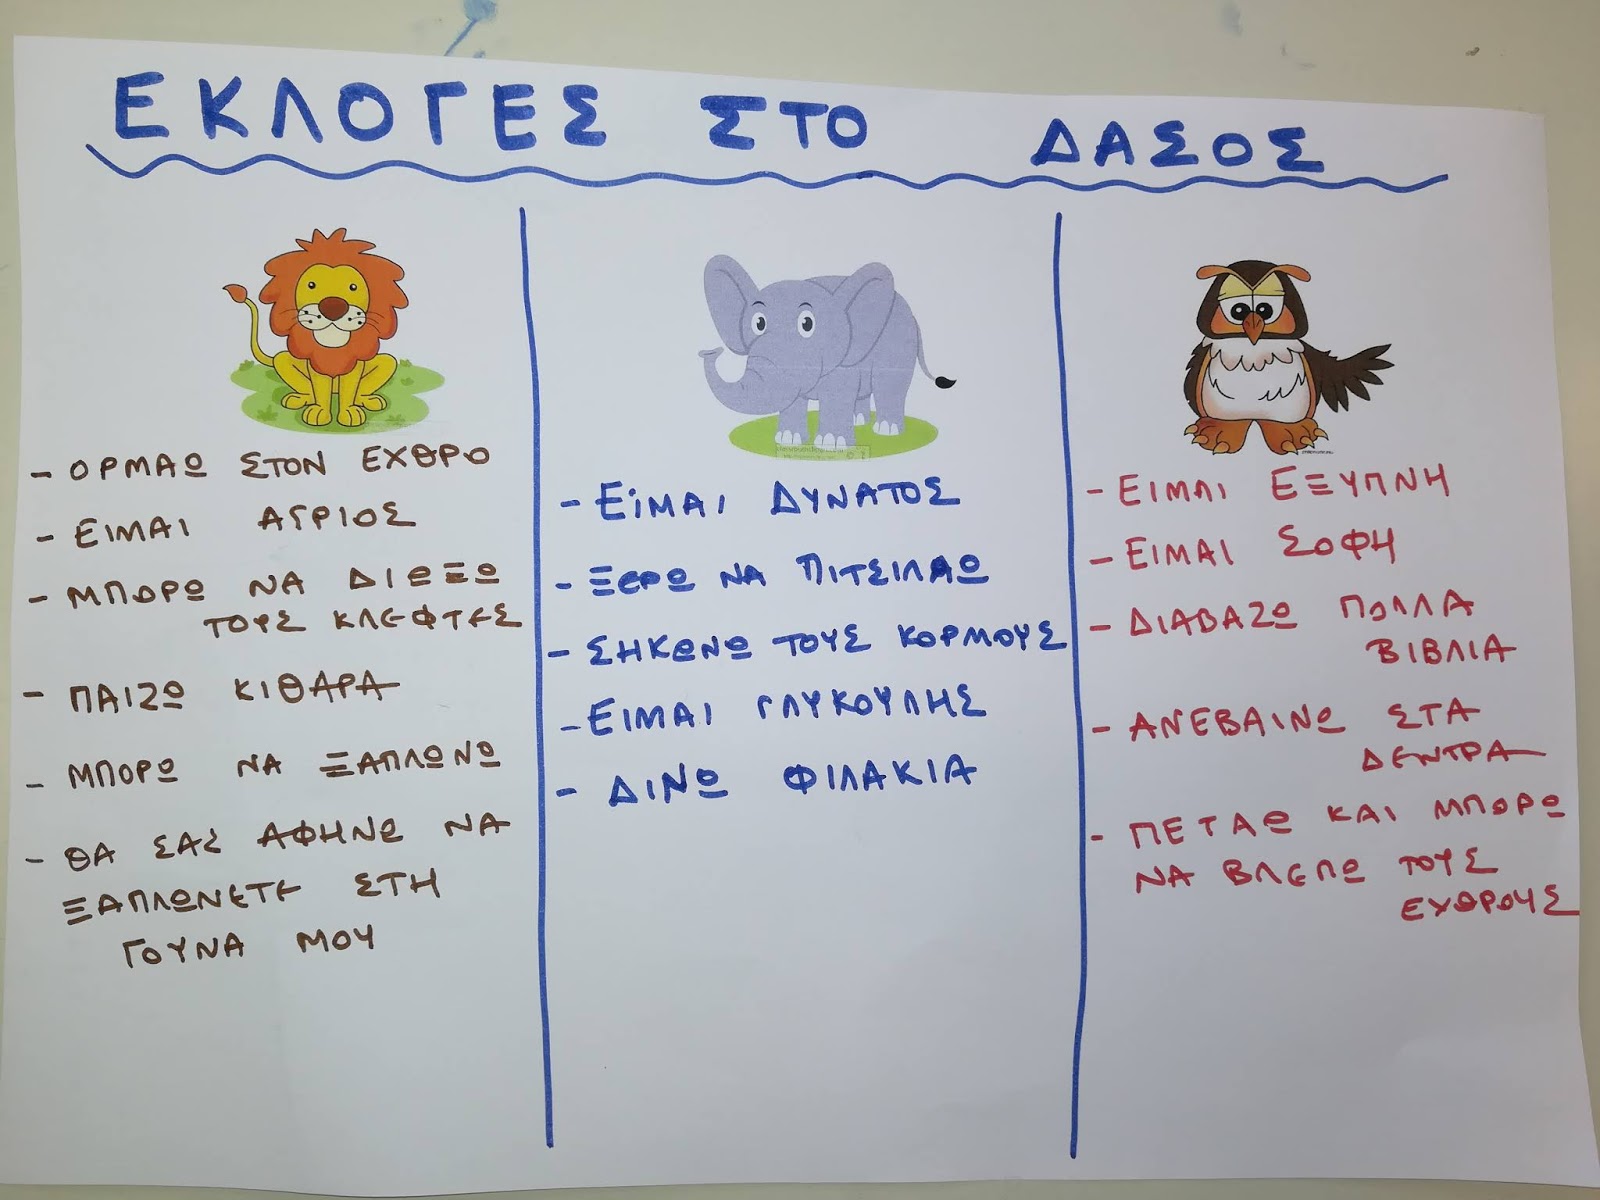 ΕΚΛΟΓΕΣ ΣΤΟ ΔΑΣΟΣ
- ΟΡΜΑΩ ΣΤΟΝ ΕΧΘΡΟ
- ΕΙΜΑΙ ΑΓΡΙΟΣ
- ΜΠΟΡΩ ΝΑ ΔΙΩΞΩ
ΤΟΥΣ ΚΛΕΦΤΕΣ
- ΠΑΙΖΩ ΚΙΘΑΡΑ
- ΜΠΟΡΩ ΝΑ ΞΑΠΛΩΝΩ
- ΘΑ ΣΑΣ ΑΦΗΝΩ ΝΑ
ΞΑΠΛΩΝΕΤΕ ΣΤΗ
ΓΟΥΝΑ ΜΟΥ
- ΕΙΜΑΙ ΔΥΝΑΤΟΣ
- ΞΕΡΩ ΝΑ ΠΙΤΣΙΛΑΩ
- ΣΗΚΩΝΩ ΤΟΥΣ ΚΟΡΜΟΥΣ
- ΕΙΜΑΙ ΓΛΥΚΟΥΛΗΣ
- ΔΙΝΩ ΦΙΛΑΚΙΑ
- ΕΙΜΑΙ ΕΞΥΠΝΗ
- ΕΙΜΑΙ ΣΟΦΗ
- ΔΙΑΒΑΖΩ ΠΟΛΛΑ
ΒΙΒΛΙΑ
- ΑΝΕΒΑΙΝΩ ΣΤΑ
ΔΕΝΤΡΑ
- ΠΕΤΑΩ ΚΑΙ ΜΠΟΡΩ
ΝΑ ΒΛΕΠΩ ΤΟΥΣ
ΕΧΘΡΟΥΣ